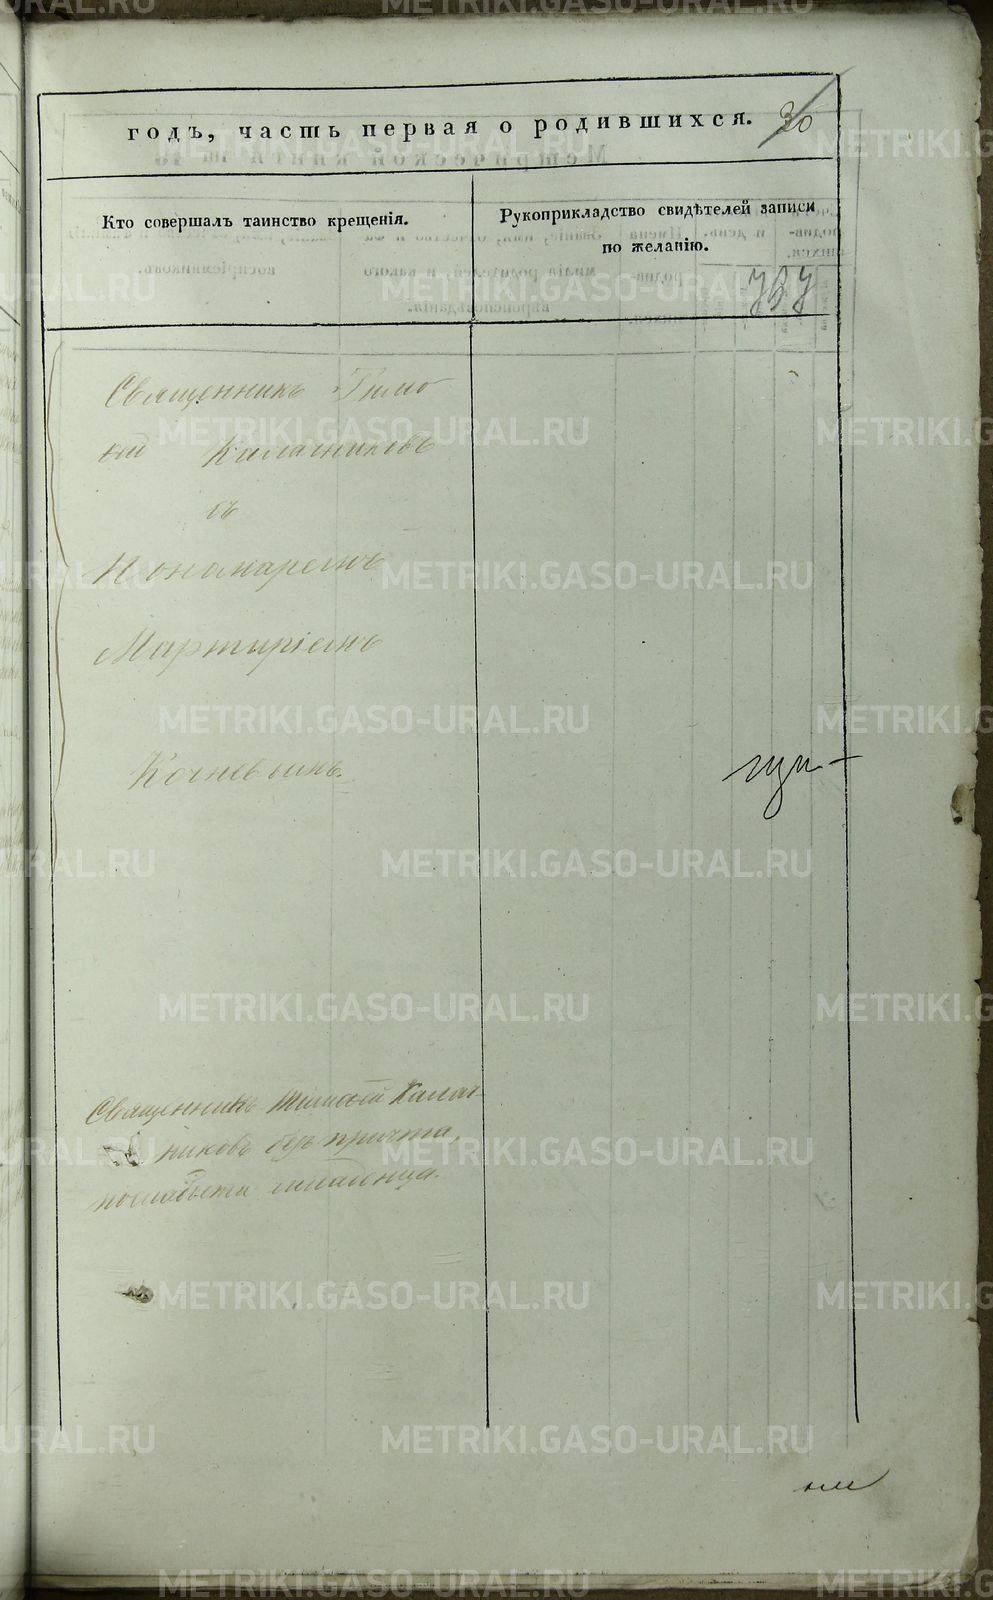 годъ, часть первая о родившихся. 30
Кто совершалъ таинство крещенія.
Рукоприкладство свидѣтелей записи
по желанію.
Священникъ Тимо
ѳій Калашниковъ
съ
Пономаремъ
Мартиріемъ
Кочневымъ.
Священникъ Тимоѳей Калаш-
никовъ безъ причта,
по слабости младенца.
METRIKI.GASO-URAL.RU